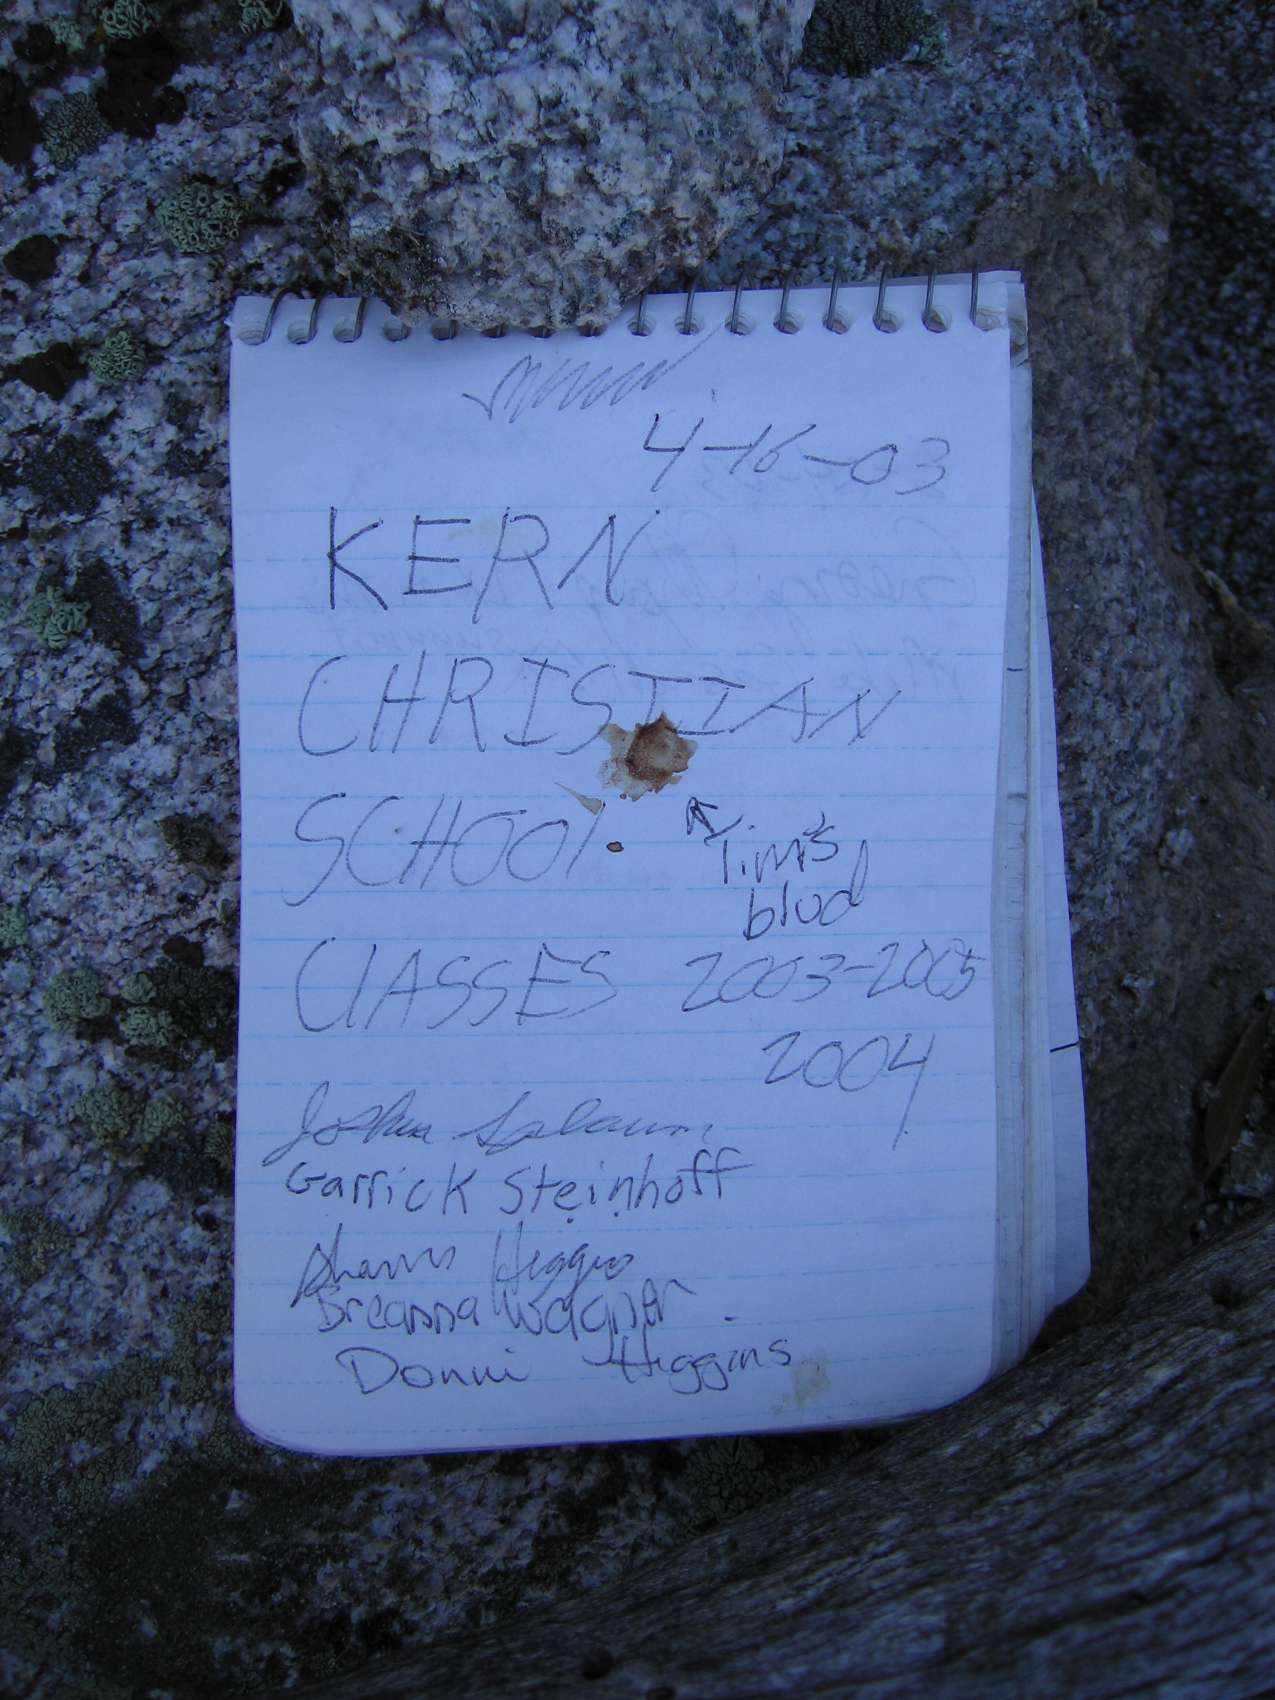 4-16-03
KERN
CHRISTIAN
SCHOOl.
Tim's
blud
ClASSES 2003-2005
2004
Joshua
Garrick Steinhoff
Higgins
Breanna Wagner
Donni Higgins